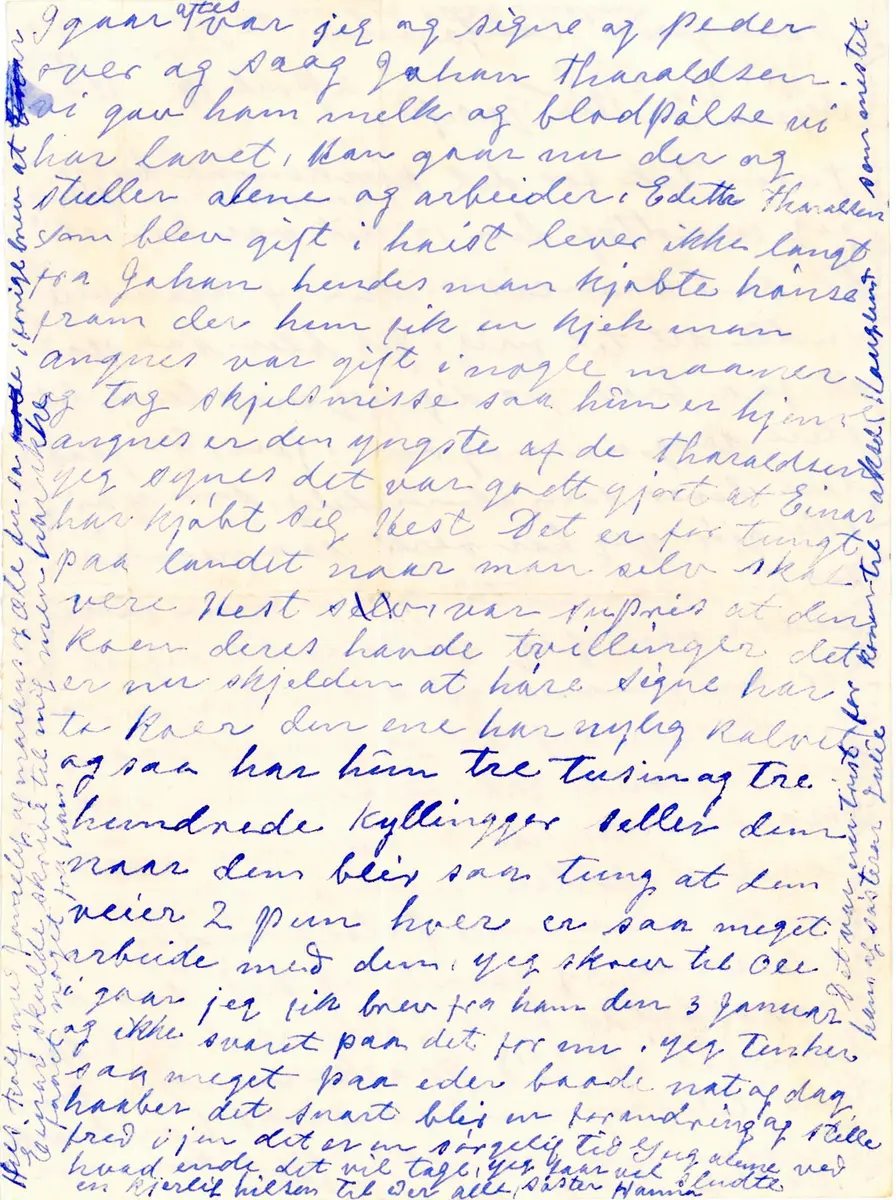 I gaar aftes var jeg og signe og Peder
over og saag Johan Tharaldsen
vi gav ham melk og blodpålse vi
har lavet, Han gaar nu der og
stuller alene og arbeider, Edith Tharaldsen
som blev gift i høist lever ikke langt
fra Johan hendes man kjøbte hønse
fram der hun fik en kjek man
angnes var gift i nogle maaner
og tog skjilsmisse saa hun er hjem
angnes er den yngste af de Tharaldsen
jeg synes det var godt gjort at Einar
har kjøbt sig Hest Det er for tungt
paa landet naar man selv skal
vere Hest var supris at den
koen deres havde tvillinger det
er nu skjelden at høre Signe har
to Koer den ene har nylig kalvet
og saa har hun tre tusin og tre
hundrede Kyllingger seller dem
naar dem bleir saa tung at dem
veier 2 pun hver er saa meget
arbeide med dem, jeg skrev til Ole
i gaar jeg fik brev fra ham den 3 Januar
og ikke svaret paa det for nu, jeg tenker
saa meget paa eder baade nat og dag
haaber det snart blir en forandring og stille
fred i jen det er en sørgelig tid Gug alene ved
hvad ende det vil tage, jeg faar vel slutte
en kjerlig hilsen til Der alle, søster Hanna
Hils Rolf med familie og markus og Ole der sa i forige brev at
Einar skulde skrive til mig men har ikke
faaet noget fra ham
Det var trist for konen til aksel Hauglund som mistet
ham og søsteren Julie